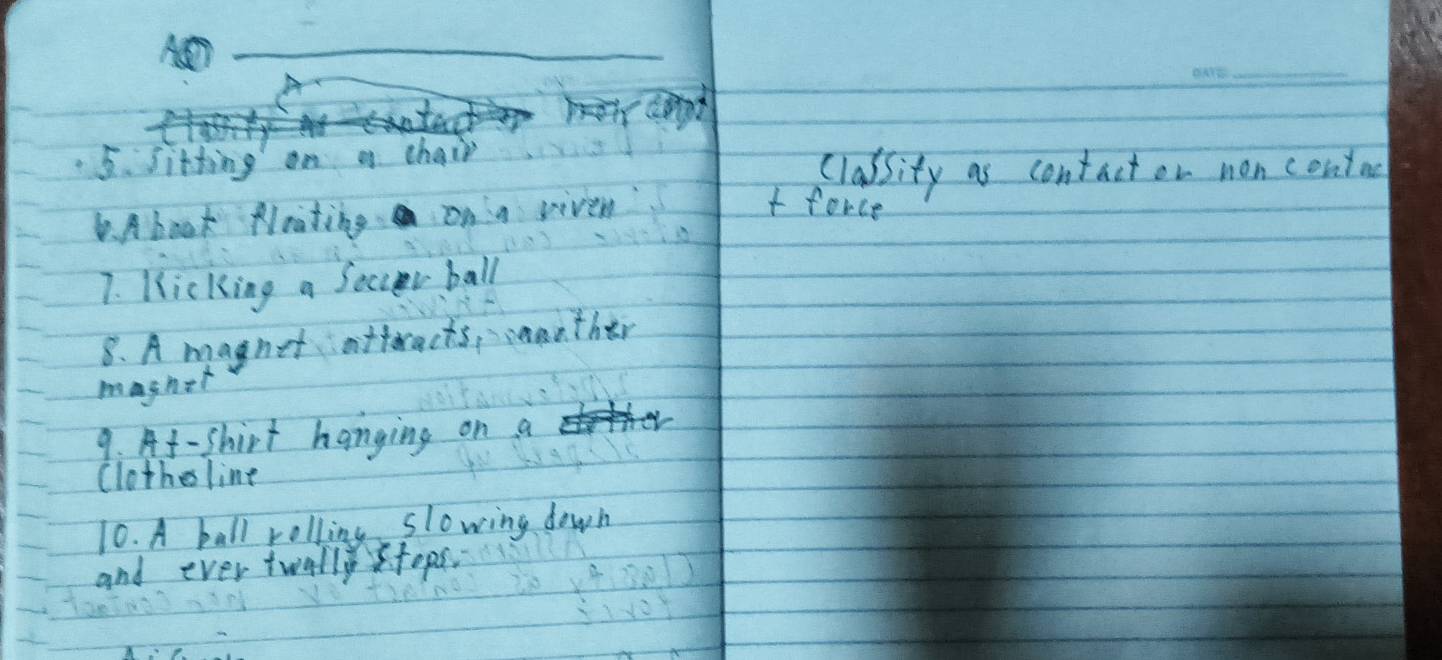 5. Sitting on a chair
6. A boat floating on a river
7. Kicking a Soccer ball
8. A magnet attracts, another
magnet
9. A t-shirt hanging on a
Clotheline
10. A ball rolling, slowing down
and ever twally stops.
DATE
Classify as contact or non contac
t force